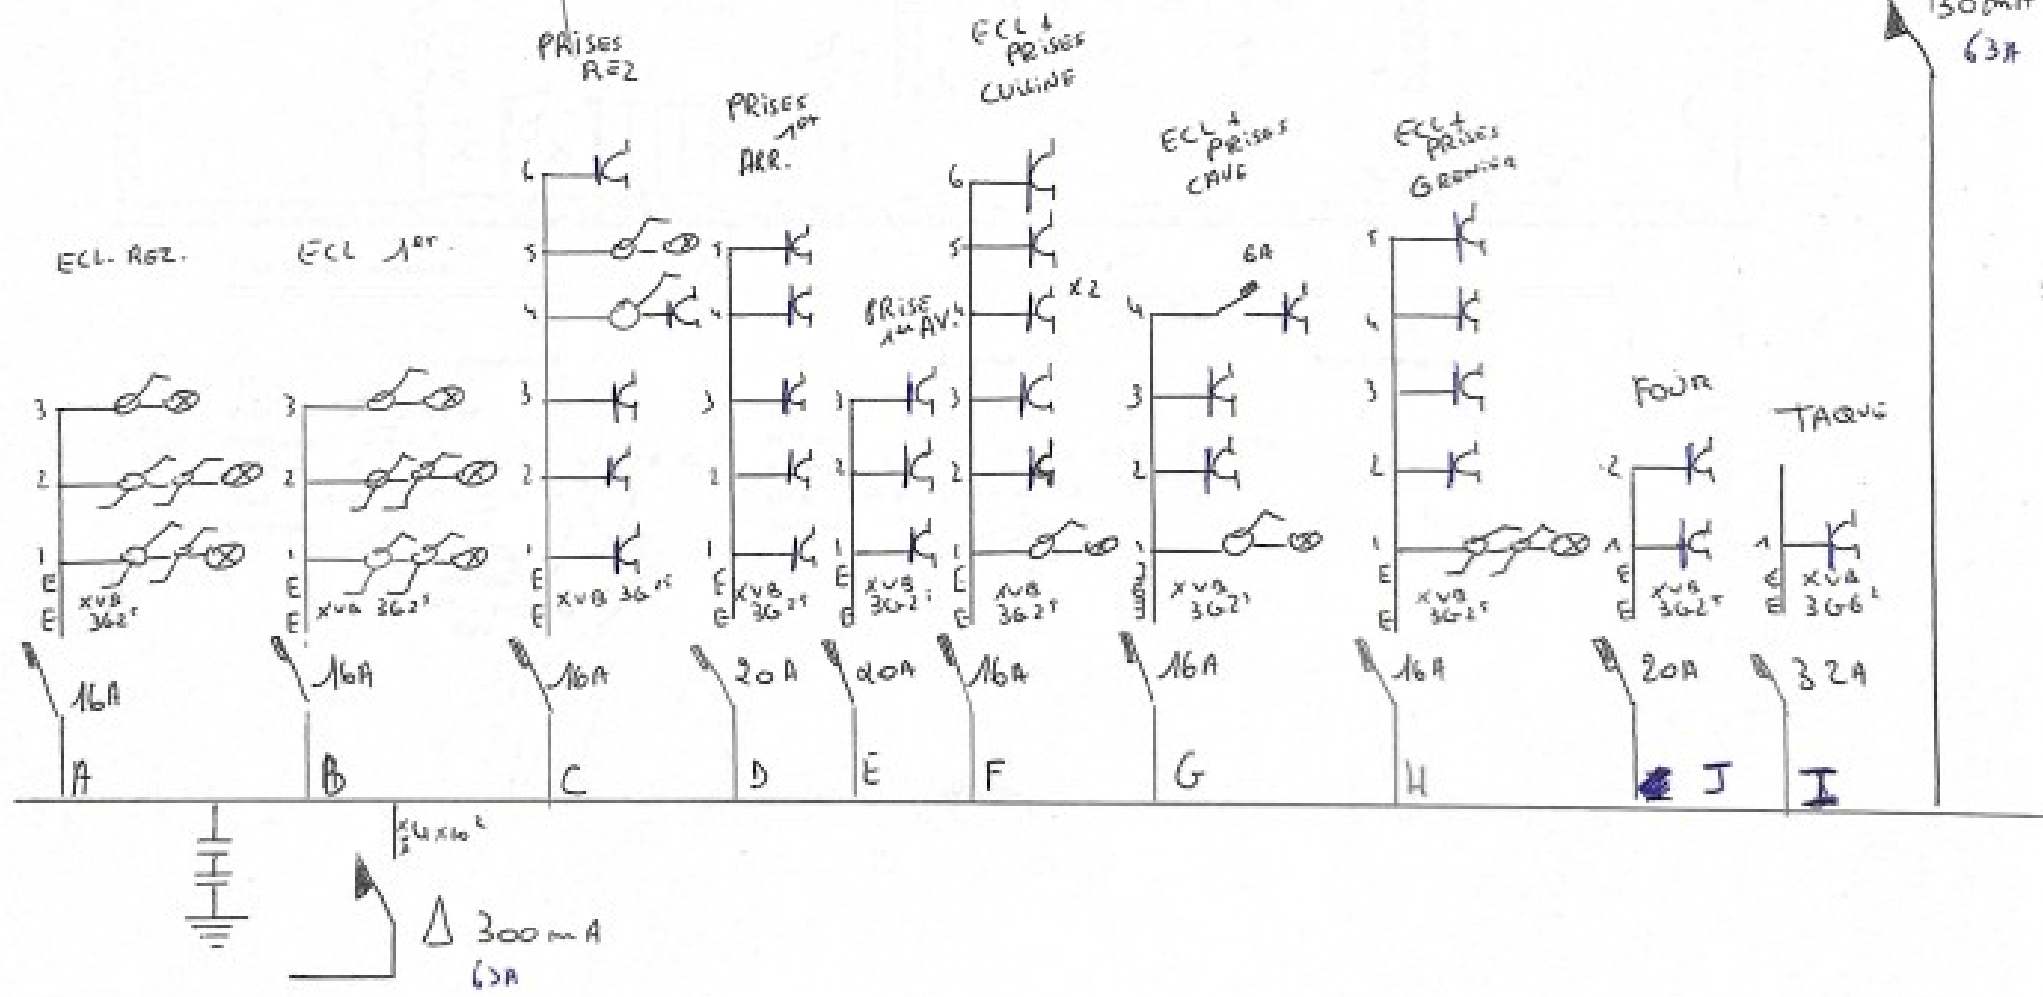 PRISES
REZ
ECL +
PRISES
CUISINE
63A
PRISES
1er
ARR.
ECL +
PRISES
CAVE
ECL +
PRISES
GRENIER
ECL. REZ.
ECL 1er.
PRISE
1er AV.
FOUR
TAQUE
6
5
4
3
2
1
6A
x2
3
2
1
E
E
XVB
3G2⁵
3
2
1
E
E
XVB 3G2⁵
E
E
XVB 3G2⁵
5
4
3
2
1
E
E
XVB
3G2⁵
3
2
1
E
E
XVB
3G2⁵
6
5
4
3
2
1
E
E
XVB
3G2⁵
4
3
2
1
XVB
3G2⁵
5
4
3
2
1
E
E
XVB
3G2⁵
2
1
E
E
XVB
3G2⁵
1
E
E
XVB
3G6²
16A
16A
16A
20A
20A
16A
16A
16A
20A
32A
A
B
C
D
E
F
G
H
J
I
4x10²
Δ 300mA
63A